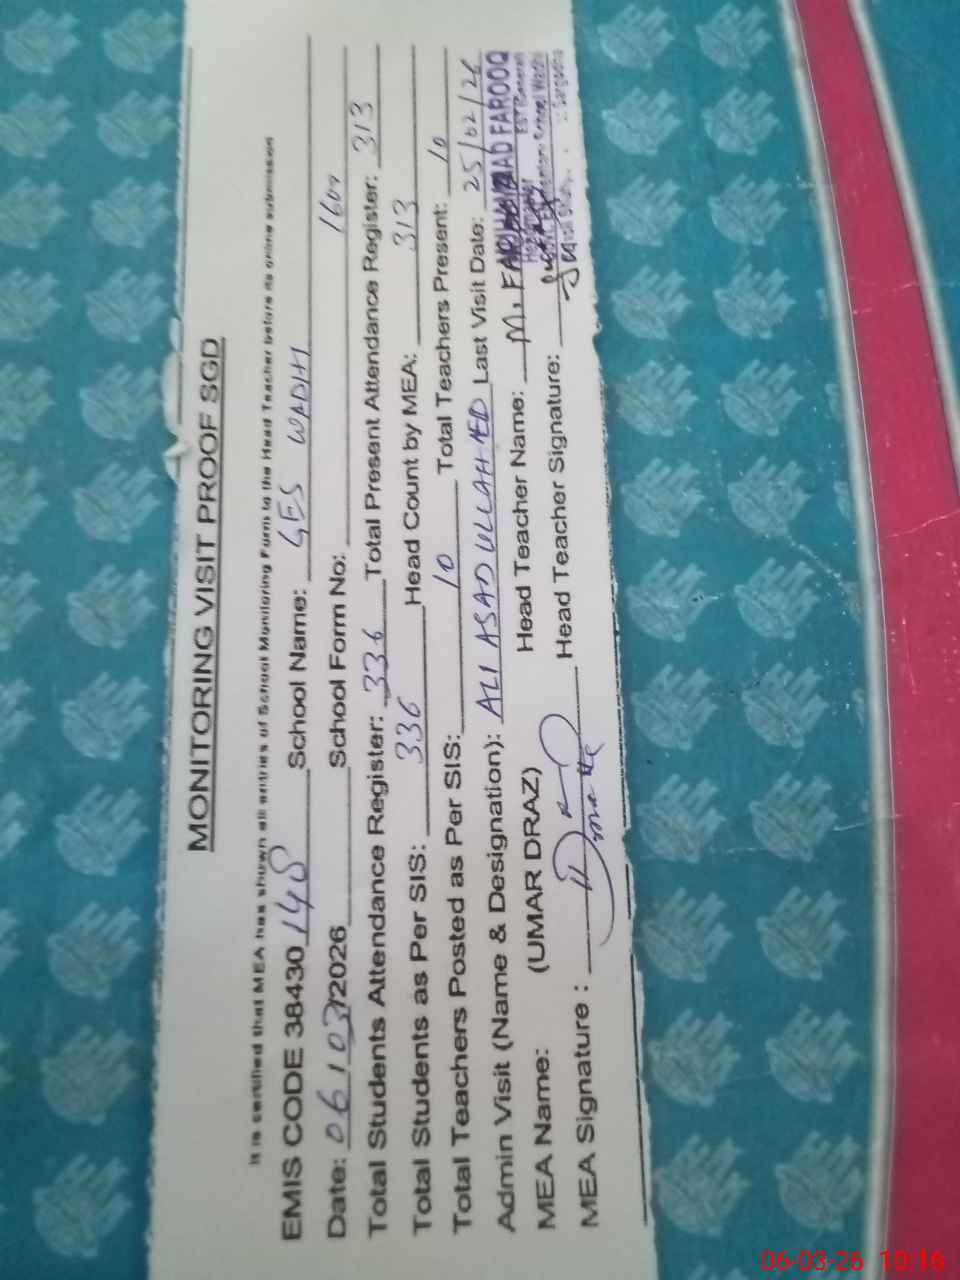 MONITORING VISIT PROOF SGD
It is certified that MEA has shown all entries of School Monitoring Form to the Head Teacher before its online submission
EMIS CODE 38430148 School Name: GES WADHI
Date: 06/03/2026 School Form No: 1600
Total Students Attendance Register: 336 Total Present Attendance Register: 313
Total Students as Per SIS: 336 Head Count by MEA: 313
Total Teachers Posted as Per SIS: 10 Total Teachers Present: 10
Admin Visit (Name & Designation): ALI ASAD ULLAH AED Last Visit Date: 25/02/26
MEA Name: (UMAR DRAZ) Head Teacher Name: M. FARHAN AD FAROOQ
MEA Signature : Head Teacher Signature:
06-03-26 10:16